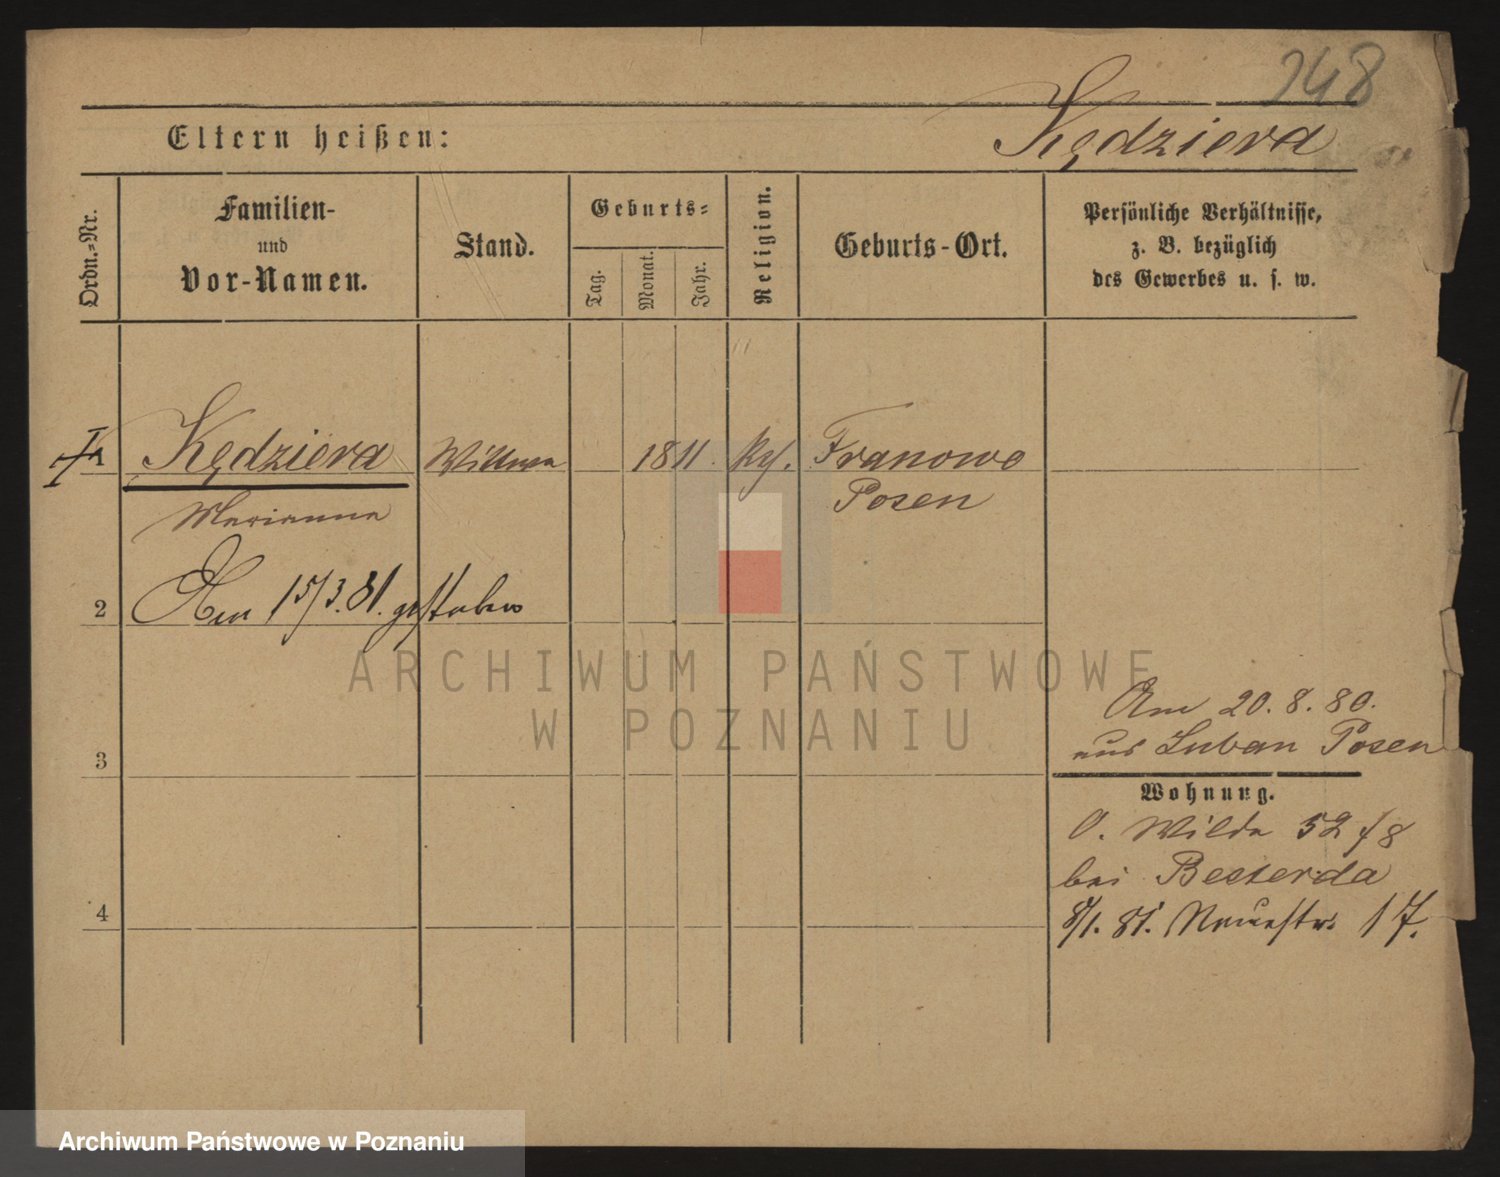 248
Kędziera
Eltern heißen:
Ordn.-Nr.
Familien-
und
Vor-Namen.
Stand.
Geburts-
Tag.
Monat.
Jahr.
Religion.
Geburts-Ort.
Persönliche Verhältnisse,
z. B. bezüglich
des Gewerbes u. s. w.
1 Kędziera Wittwe 1811. Franowo
Marianna Posen
2 Am 15/3.81. gestorben
ARCHIWUM PAŃSTWOWE
W POZNANIU
Am 20. 8. 80.
aus Luban Posen
3
Wohnung.
O. Wilda 52 f 8
bei Besterda
4
8/1. 81. Neuestr. 17.
Archiwum Państwowe w Poznaniu